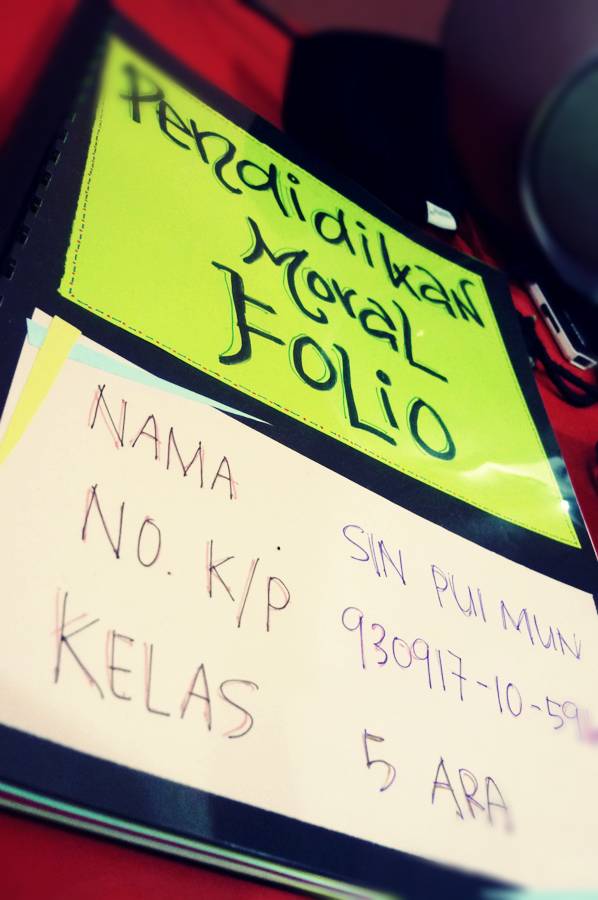 Pendidikan
Moral
Folio
NAMA SIN PUI MUN
NO. K/P 930917-10-59
KELAS 5 ARA